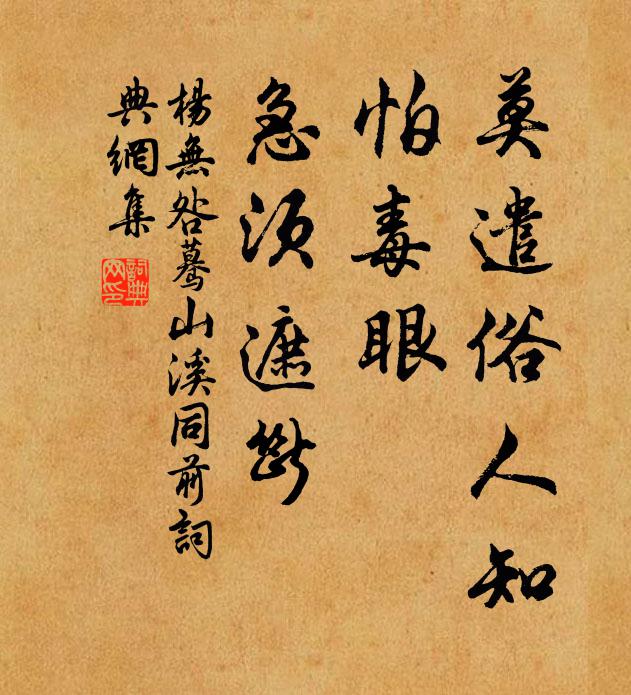 莫遣俗人知
怕毒眼
急须遮斷
楊無咎驀山溪同前詞
典網集
詞典
网印